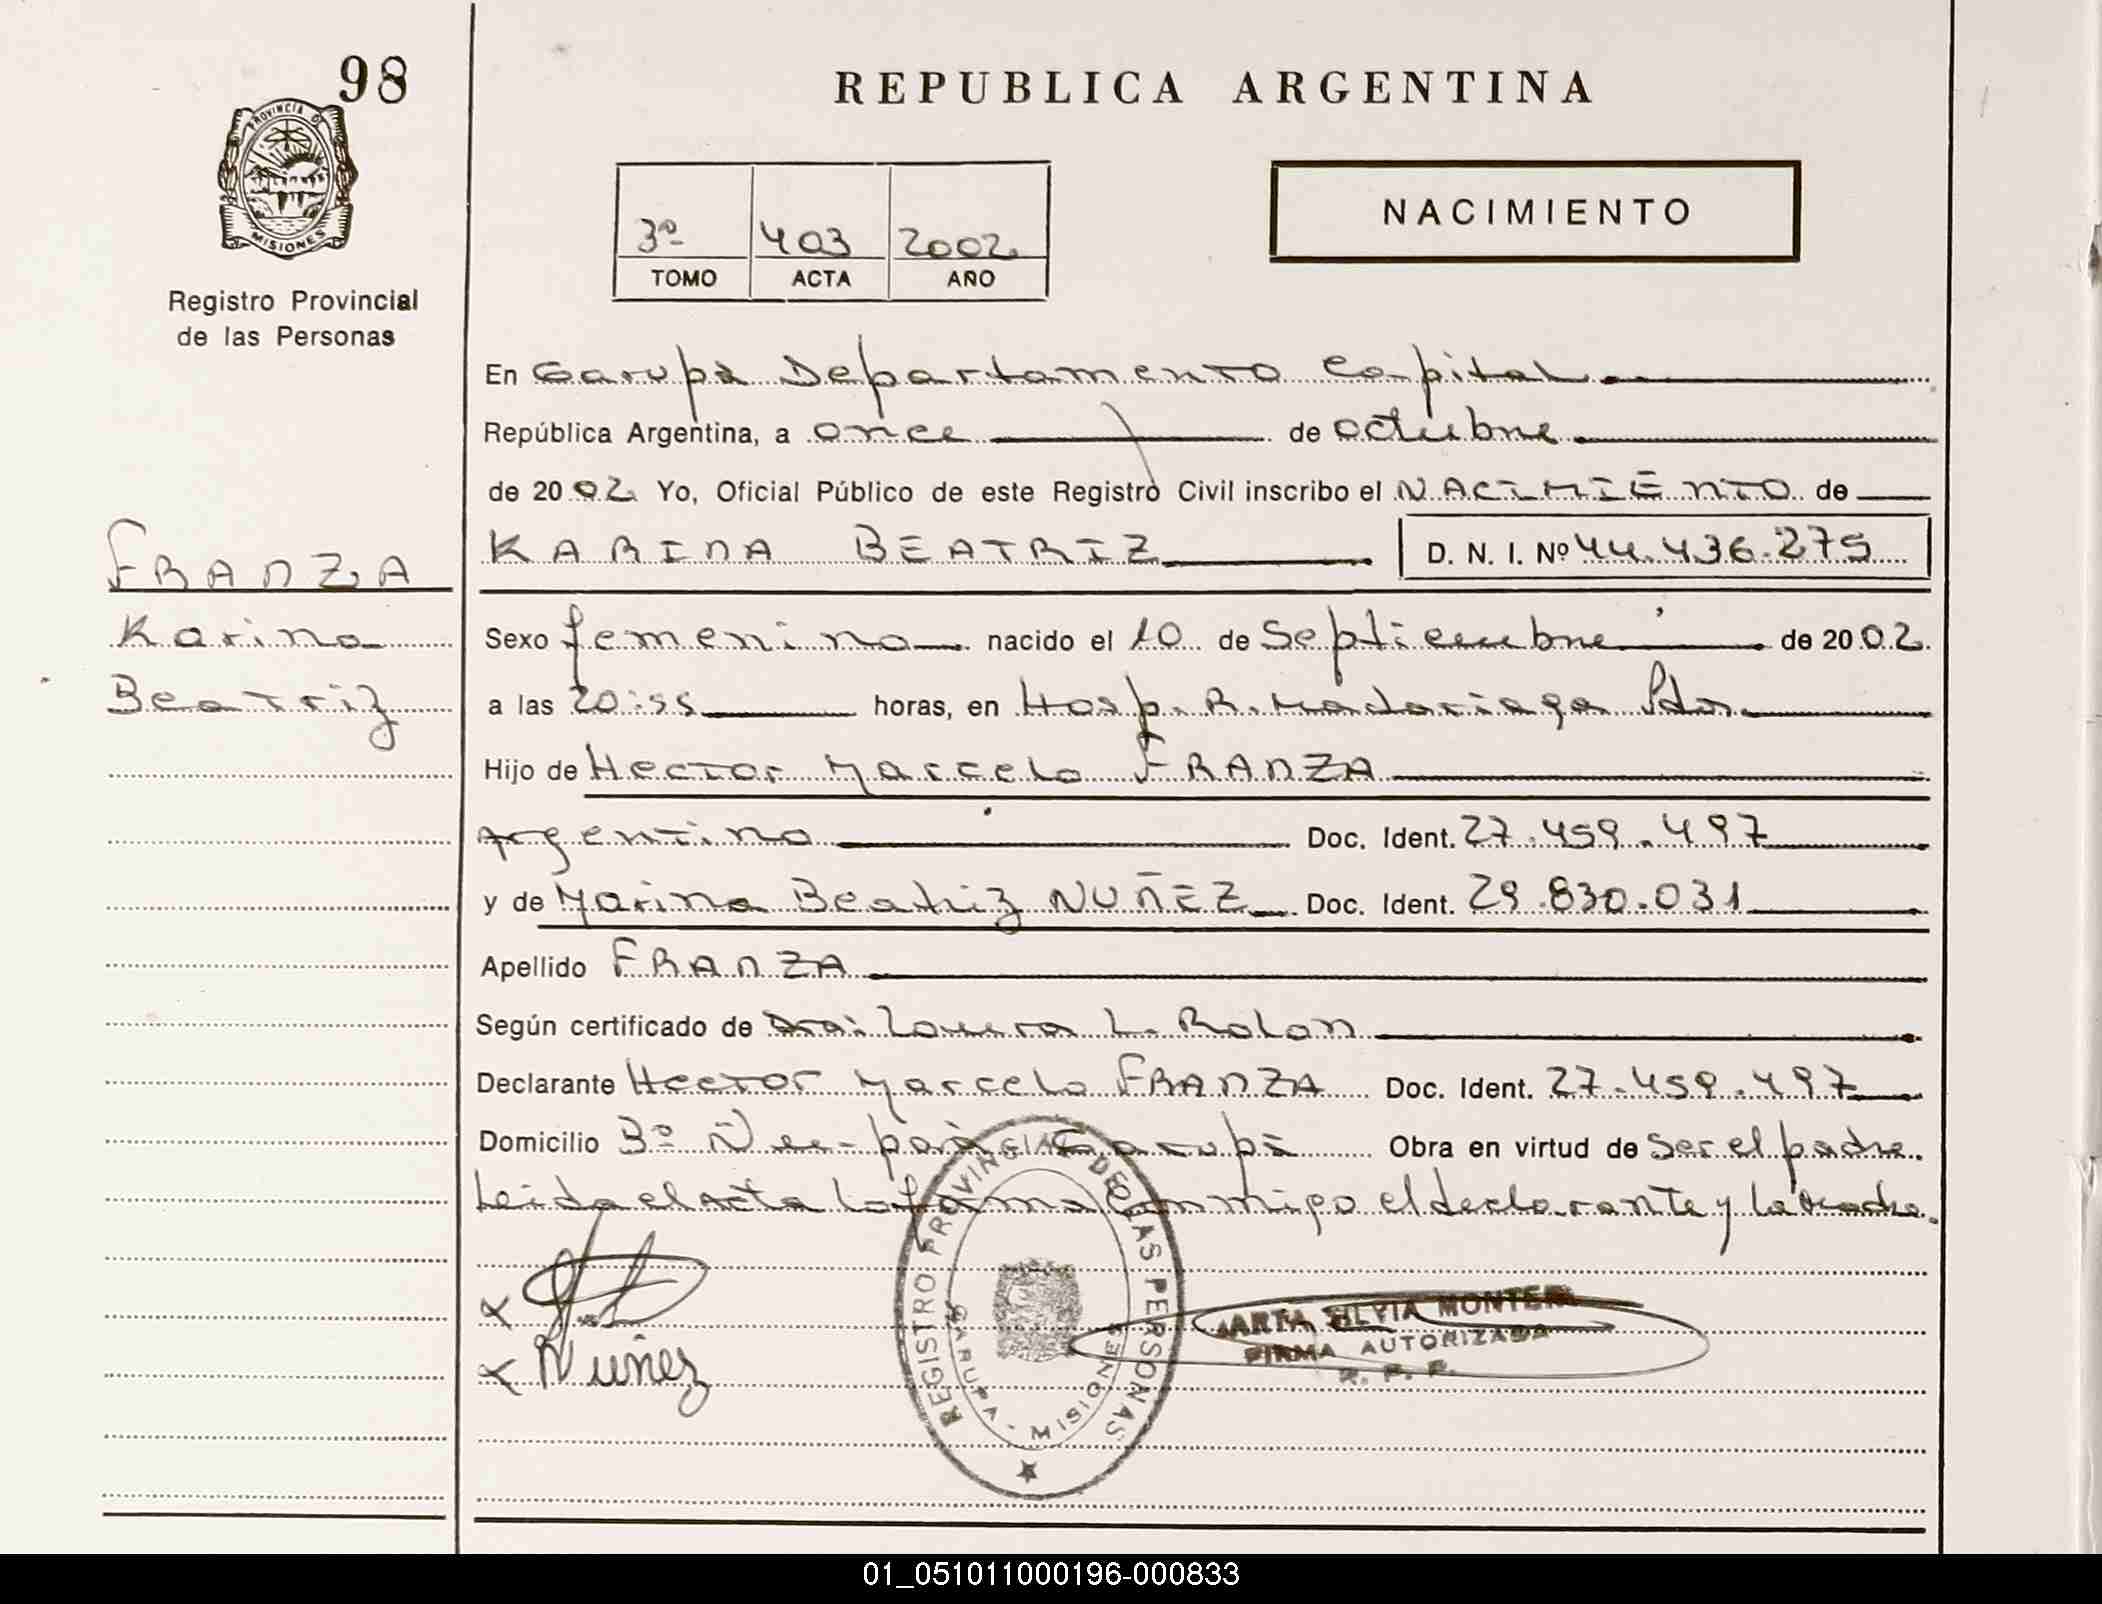 98
REPUBLICA ARGENTINA
PROVINCIA D
MISIONES
Registro Provincial
de las Personas
3º 403 2002
TOMO ACTA AÑO
NACIMIENTO
En Garupà Departamento Capital
República Argentina, a once de octubre
de 2002 Yo, Oficial Público de este Registro Civil inscribo el NACIMIENTO de
KARINA BEATRIZ D. N. I. Nº 44.436.275
FRANZA
Karina
Beatriz
Sexo femenino nacido el 10 de Septiembre de 2002
a las 20:55 horas, en Hosp. R. Madariaga Pdas.
Hijo de Hector Marcelo FRANZA
Argentino Doc. Ident. 27.459.497
y de Marina Beatriz NUÑEZ Doc. Ident. 29.830.031
Apellido FRANZA
Según certificado de Dra: Laura L. Rolon
Declarante Hector Marcelo FRANZA Doc. Ident. 27.459.497
Domicilio Bº Ñu-porà Garupà Obra en virtud de Ser el padre.
Leida el acta la firma conmigo el declarante y la madre.
Nuñez
REGISTRO PROVINCIAL DE LAS PERSONAS
GARUPA - MISIONES
ARTA SILVIA MONTER
FIRMA AUTORIZADA
R. P. P.
01_051011000196-000833